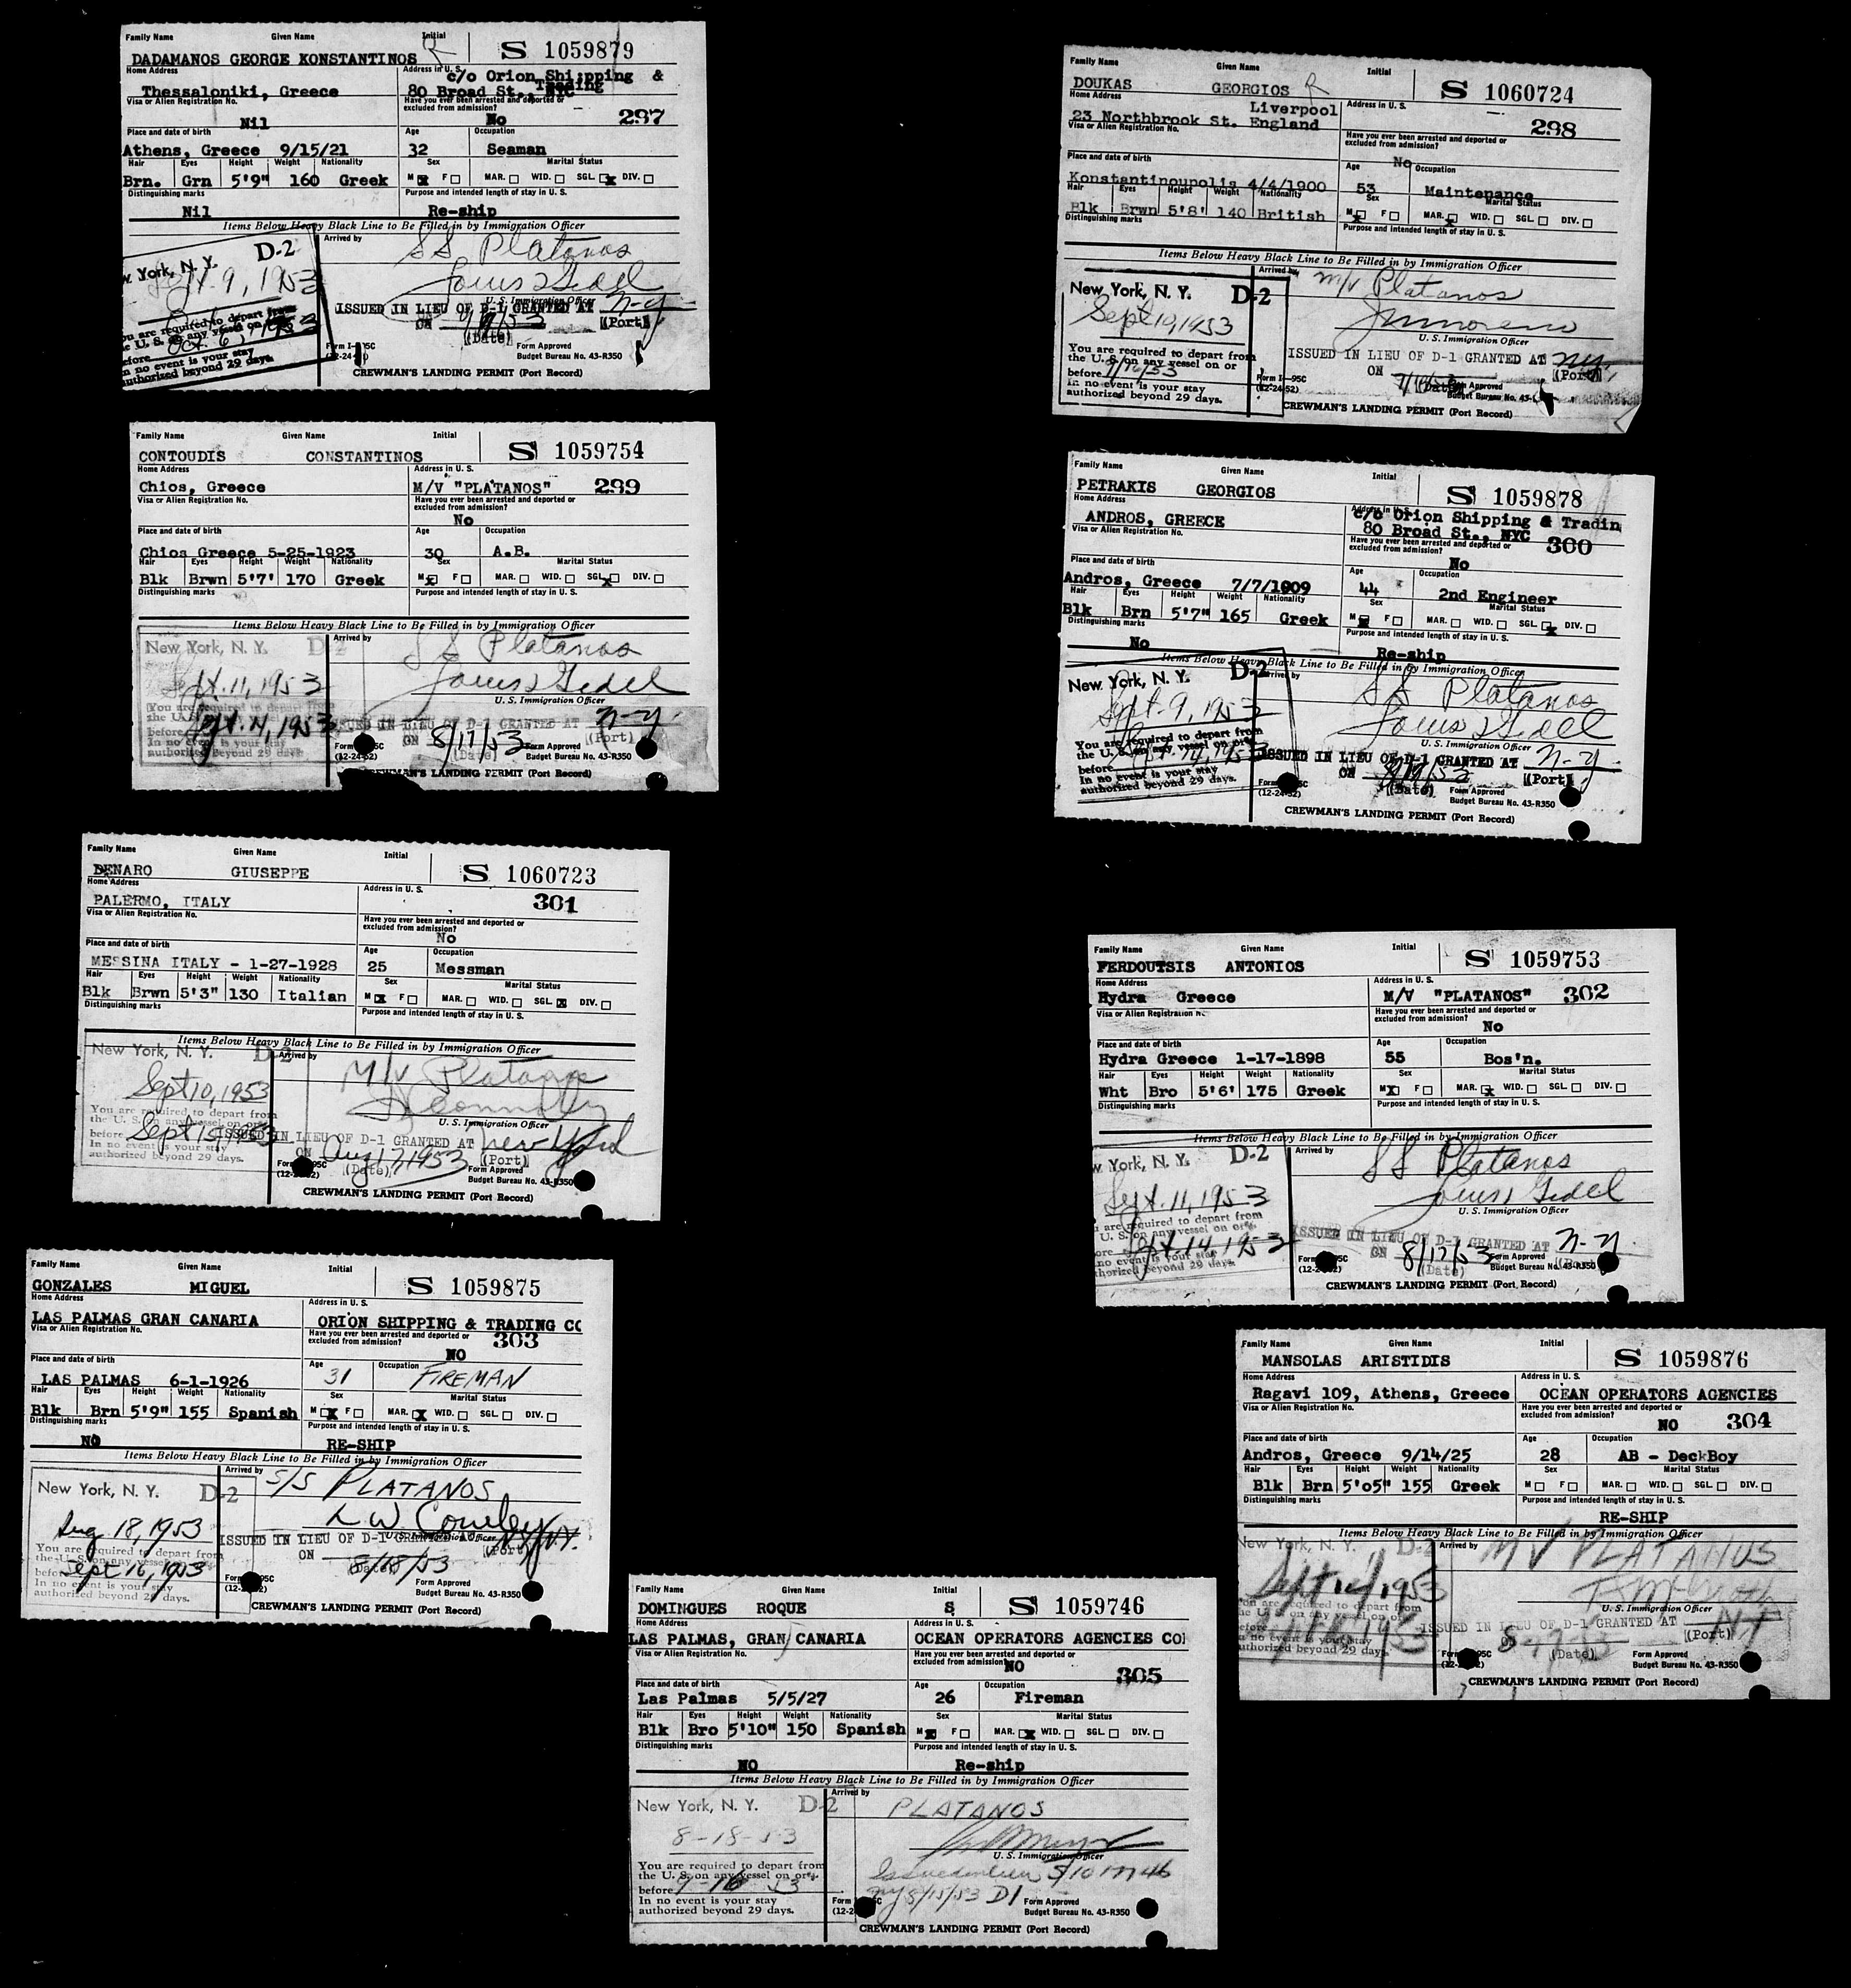 Family Name Given Name Initial
DADAMANOS GEORGE KONSTANTINOS R
S 1059879
Home Address Address in U. S.
Thessaloniki, Greece
c/o Orion Shipping & Trading
80 Broad St., NYC
Visa or Alien Registration No.
Nil
Have you ever been arrested and deported or
excluded from admission?
No 297
Place and date of birth Age Occupation
Athens, Greece 9/15/21 32 Seaman
Hair Eyes Height Weight Nationality Sex Marital Status
Brn. Grn 5'9" 160 Greek M F MAR. WID. SGL. DIV.
Distinguishing marks Purpose and intended length of stay in U. S.
Nil Re-ship
Items Below Heavy Black Line to Be Filled in by Immigration Officer
w York, N. Y. D-2
Sept. 9, 1953
ou are required to depart from
e U. S. on any vessel on or
efore Oct. 6, 1953
n no event is your stay
authorized beyond 29 days.
Arrived by SS Platanos
Louis Gedel
U. S. Immigration Officer
ISSUED IN LIEU OF D-1 GRANTED AT N-Y-
ON (Date) (Port)
Form Approved
Budget Bureau No. 43-R350
CREWMAN'S LANDING PERMIT (Port Record)
Family Name Given Name Initial
DOUKAS GEORGIOS R
S 1060724
Home Address Address in U. S.
Liverpool
23 Northbrook St. England
298
Visa or Alien Registration No.
Have you ever been arrested and deported or
excluded from admission?
No
Place and date of birth Age Occupation
Konstantinoupolis 4/4/1900 53 Maintenance
Hair Eyes Height Weight Nationality Sex Marital Status
Blk Brwn 5'8' 140 British M F MAR. WID. SGL. DIV.
Distinguishing marks Purpose and intended length of stay in U. S.
Items Below Heavy Black Line to Be Filled in by Immigration Officer
New York, N. Y. D-2
Sept 10, 1953
You are required to depart from
the U. S. on any vessel on or
before 9/16/53
In no event is your stay
authorized beyond 29 days.
Arrived by M/V Platanos
U. S. Immigration Officer
ISSUED IN LIEU OF D-1 GRANTED AT NY.
ON (Date) (Port)
Form I-95C
(12-24-52)
Form Approved
Budget Bureau No. 43-
CREWMAN'S LANDING PERMIT (Port Record)
Family Name Given Name Initial
CONTOUDIS CONSTANTINOS
S 1059754
Home Address Address in U. S.
Chios, Greece M/V "PLATANOS" 299
Visa or Alien Registration No.
Have you ever been arrested and deported or
excluded from admission?
No
Place and date of birth Age Occupation
Chios Greece 5-25-1923 30 A.B.
Hair Eyes Height Weight Nationality Sex Marital Status
Blk Brwn 5'7' 170 Greek M F MAR. WID. SGL. DIV.
Distinguishing marks Purpose and intended length of stay in U. S.
Items Below Heavy Black Line to Be Filled in by Immigration Officer
New York, N. Y. D-2
Sept. 11, 1953
You are required to depart from
the U. S.
before Sept. 14, 1953
In no event is your stay
authorized beyond 29 days.
Arrived by SS Platanos
Louis Gedel
U. S. Immigration Officer
ISSUED IN LIEU OF D-1 GRANTED AT N-Y-
ON 8/17/53 (Date) (Port)
Form Approved
Budget Bureau No. 43-R350
CREWMAN'S LANDING PERMIT (Port Record)
Family Name Given Name Initial
PETRAKIS GEORGIOS
S 1059878
Home Address Address in U. S.
ANDROS, GREECE
c/o Orion Shipping & Tradin
80 Broad St., NYC
Visa or Alien Registration No.
Have you ever been arrested and deported or
excluded from admission?
300
No
Place and date of birth Age Occupation
Andros, Greece 7/7/1909 44 2nd Engineer
Hair Eyes Height Weight Nationality Sex Marital Status
Blk Brn 5'7" 165 Greek M F MAR. WID. SGL. DIV.
Distinguishing marks Purpose and intended length of stay in U. S.
No Re-ship
Items Below Heavy Black Line to Be Filled in by Immigration Officer
New York, N. Y. D-2
Sept. 9, 1953
You are required to depart from
the U. S. on any vessel on or
before
In no event is your stay
authorized beyond 29 days.
Arrived by SS Platanos
Louis Gedel
U. S. Immigration Officer
ISSUED IN LIEU OF D-1 GRANTED AT N-Y-
ON (Date) (Port)
(12-24-52)
Form Approved
Budget Bureau No. 43-R350
CREWMAN'S LANDING PERMIT (Port Record)
Family Name Given Name Initial
DENARO GIUSEPPE
S 1060723
Home Address Address in U. S.
PALERMO, ITALY 301
Visa or Alien Registration No.
Have you ever been arrested and deported or
excluded from admission?
No
Place and date of birth Age Occupation
MESSINA ITALY - 1-27-1928 25 Messman
Hair Eyes Height Weight Nationality Sex Marital Status
Blk Brwn 5'3" 130 Italian M F MAR. WID. SGL. DIV.
Distinguishing marks Purpose and intended length of stay in U. S.
Items Below Heavy Black Line to Be Filled in by Immigration Officer
New York, N. Y. D-2
Sept 10, 1953
You are required to depart from
the U. S. on any vessel on or
before Sept 15, 1953
In no event is your stay
authorized beyond 29 days.
Arrived by M/V Platanos
U. S. Immigration Officer
ISSUED IN LIEU OF D-1 GRANTED AT New York
ON Aug 17, 1953 (Date) (Port)
Form Approved
Budget Bureau No. 43-R350
CREWMAN'S LANDING PERMIT (Port Record)
Family Name Given Name Initial
FERDOUTSIS ANTONIOS
S 1059753
Home Address Address in U. S.
Hydra Greece M/V "PLATANOS" 302
Visa or Alien Registration No.
Have you ever been arrested and deported or
excluded from admission?
No
Place and date of birth Age Occupation
Hydra Greece 1-17-1898 55 Bos'n.
Hair Eyes Height Weight Nationality Sex Marital Status
Wht Bro 5'6' 175 Greek M F MAR. WID. SGL. DIV.
Distinguishing marks Purpose and intended length of stay in U. S.
Items Below Heavy Black Line to Be Filled in by Immigration Officer
w York, N. Y. D-2
Sept. 11, 1953
are required to depart from
U. S. on any vessel on or
ore Sept. 14 1953
no event is your stay
thorized beyond 29 days.
Arrived by SS Platanos
Louis Gedel
U. S. Immigration Officer
ISSUED IN LIEU OF D-1 GRANTED AT N-Y
ON 8/17/53 (Date)
Form Approved
Budget Bureau No. 43-R350
CREWMAN'S LANDING PERMIT (Port Record)
Family Name Given Name Initial
GONZALES MIGUEL
S 1059875
Home Address Address in U. S.
LAS PALMAS GRAN CANARIA ORION SHIPPING & TRADING CO
Visa or Alien Registration No.
Have you ever been arrested and deported or
excluded from admission?
303
NO
Place and date of birth Age Occupation
LAS PALMAS 6-1-1926 31 FIREMAN
Hair Eyes Height Weight Nationality Sex Marital Status
Blk Brn 5'9" 155 Spanish M F MAR. WID. SGL. DIV.
Distinguishing marks Purpose and intended length of stay in U. S.
NO RE-SHIP
Items Below Heavy Black Line to Be Filled in by Immigration Officer
New York, N. Y. D-2
Aug 18, 1953
You are required to depart from
the U. S. on any vessel on or
before Sept 16, 1953
In no event is your stay
authorized beyond 29 days.
Arrived by S/S PLATANOS
U. S. Immigration Officer
ISSUED IN LIEU OF D-1 GRANTED AT N.Y.
ON 8/18/53 (Date) (Port)
Form Approved
Budget Bureau No. 43-R350
CREWMAN'S LANDING PERMIT (Port Record)
Family Name Given Name Initial
MANSOLAS ARISTIDIS
S 1059876
Home Address Address in U. S.
Ragavi 109, Athens, Greece OCEAN OPERATORS AGENCIES
Visa or Alien Registration No.
Have you ever been arrested and deported or
excluded from admission?
NO 304
Place and date of birth Age Occupation
Andros, Greece 9/14/25 28 AB - DeckBoy
Hair Eyes Height Weight Nationality Sex Marital Status
Blk Brn 5'05" 155 Greek M F MAR. WID. SGL. DIV.
Distinguishing marks Purpose and intended length of stay in U. S.
RE-SHIP
Items Below Heavy Black Line to Be Filled in by Immigration Officer
New York, N. Y. D-2
on any vessel on or
no event is your stay
uthorized beyond 29 days.
Arrived by MV PLATANOS
U. S. Immigration Officer
ISSUED IN LIEU OF D-1 GRANTED AT NY
(Date) (Port)
Form Approved
Budget Bureau No. 43-R350
CREWMAN'S LANDING PERMIT (Port Record)
Family Name Given Name Initial
DOMINGUES ROQUE S
S 1059746
Home Address Address in U. S.
LAS PALMAS, GRAN CANARIA OCEAN OPERATORS AGENCIES COR
Visa or Alien Registration No.
Have you ever been arrested and deported or
excluded from admission?
NO 305
Place and date of birth Age Occupation
Las Palmas 5/5/27 26 Fireman
Hair Eyes Height Weight Nationality Sex Marital Status
Blk Bro 5'10" 150 Spanish M F MAR. WID. SGL. DIV.
Distinguishing marks Purpose and intended length of stay in U. S.
NO Re-ship
Items Below Heavy Black Line to Be Filled in by Immigration Officer
New York, N. Y. D-2
8-18-53
You are required to depart from
the U. S. on any vessel on or
before 9-16 53
In no event is your stay
authorized beyond 29 days.
Arrived by PLATANOS
U. S. Immigration Officer
NY 8/15/53 D1
Form Approved
Budget Bureau No. 43-R350
CREWMAN'S LANDING PERMIT (Port Record)